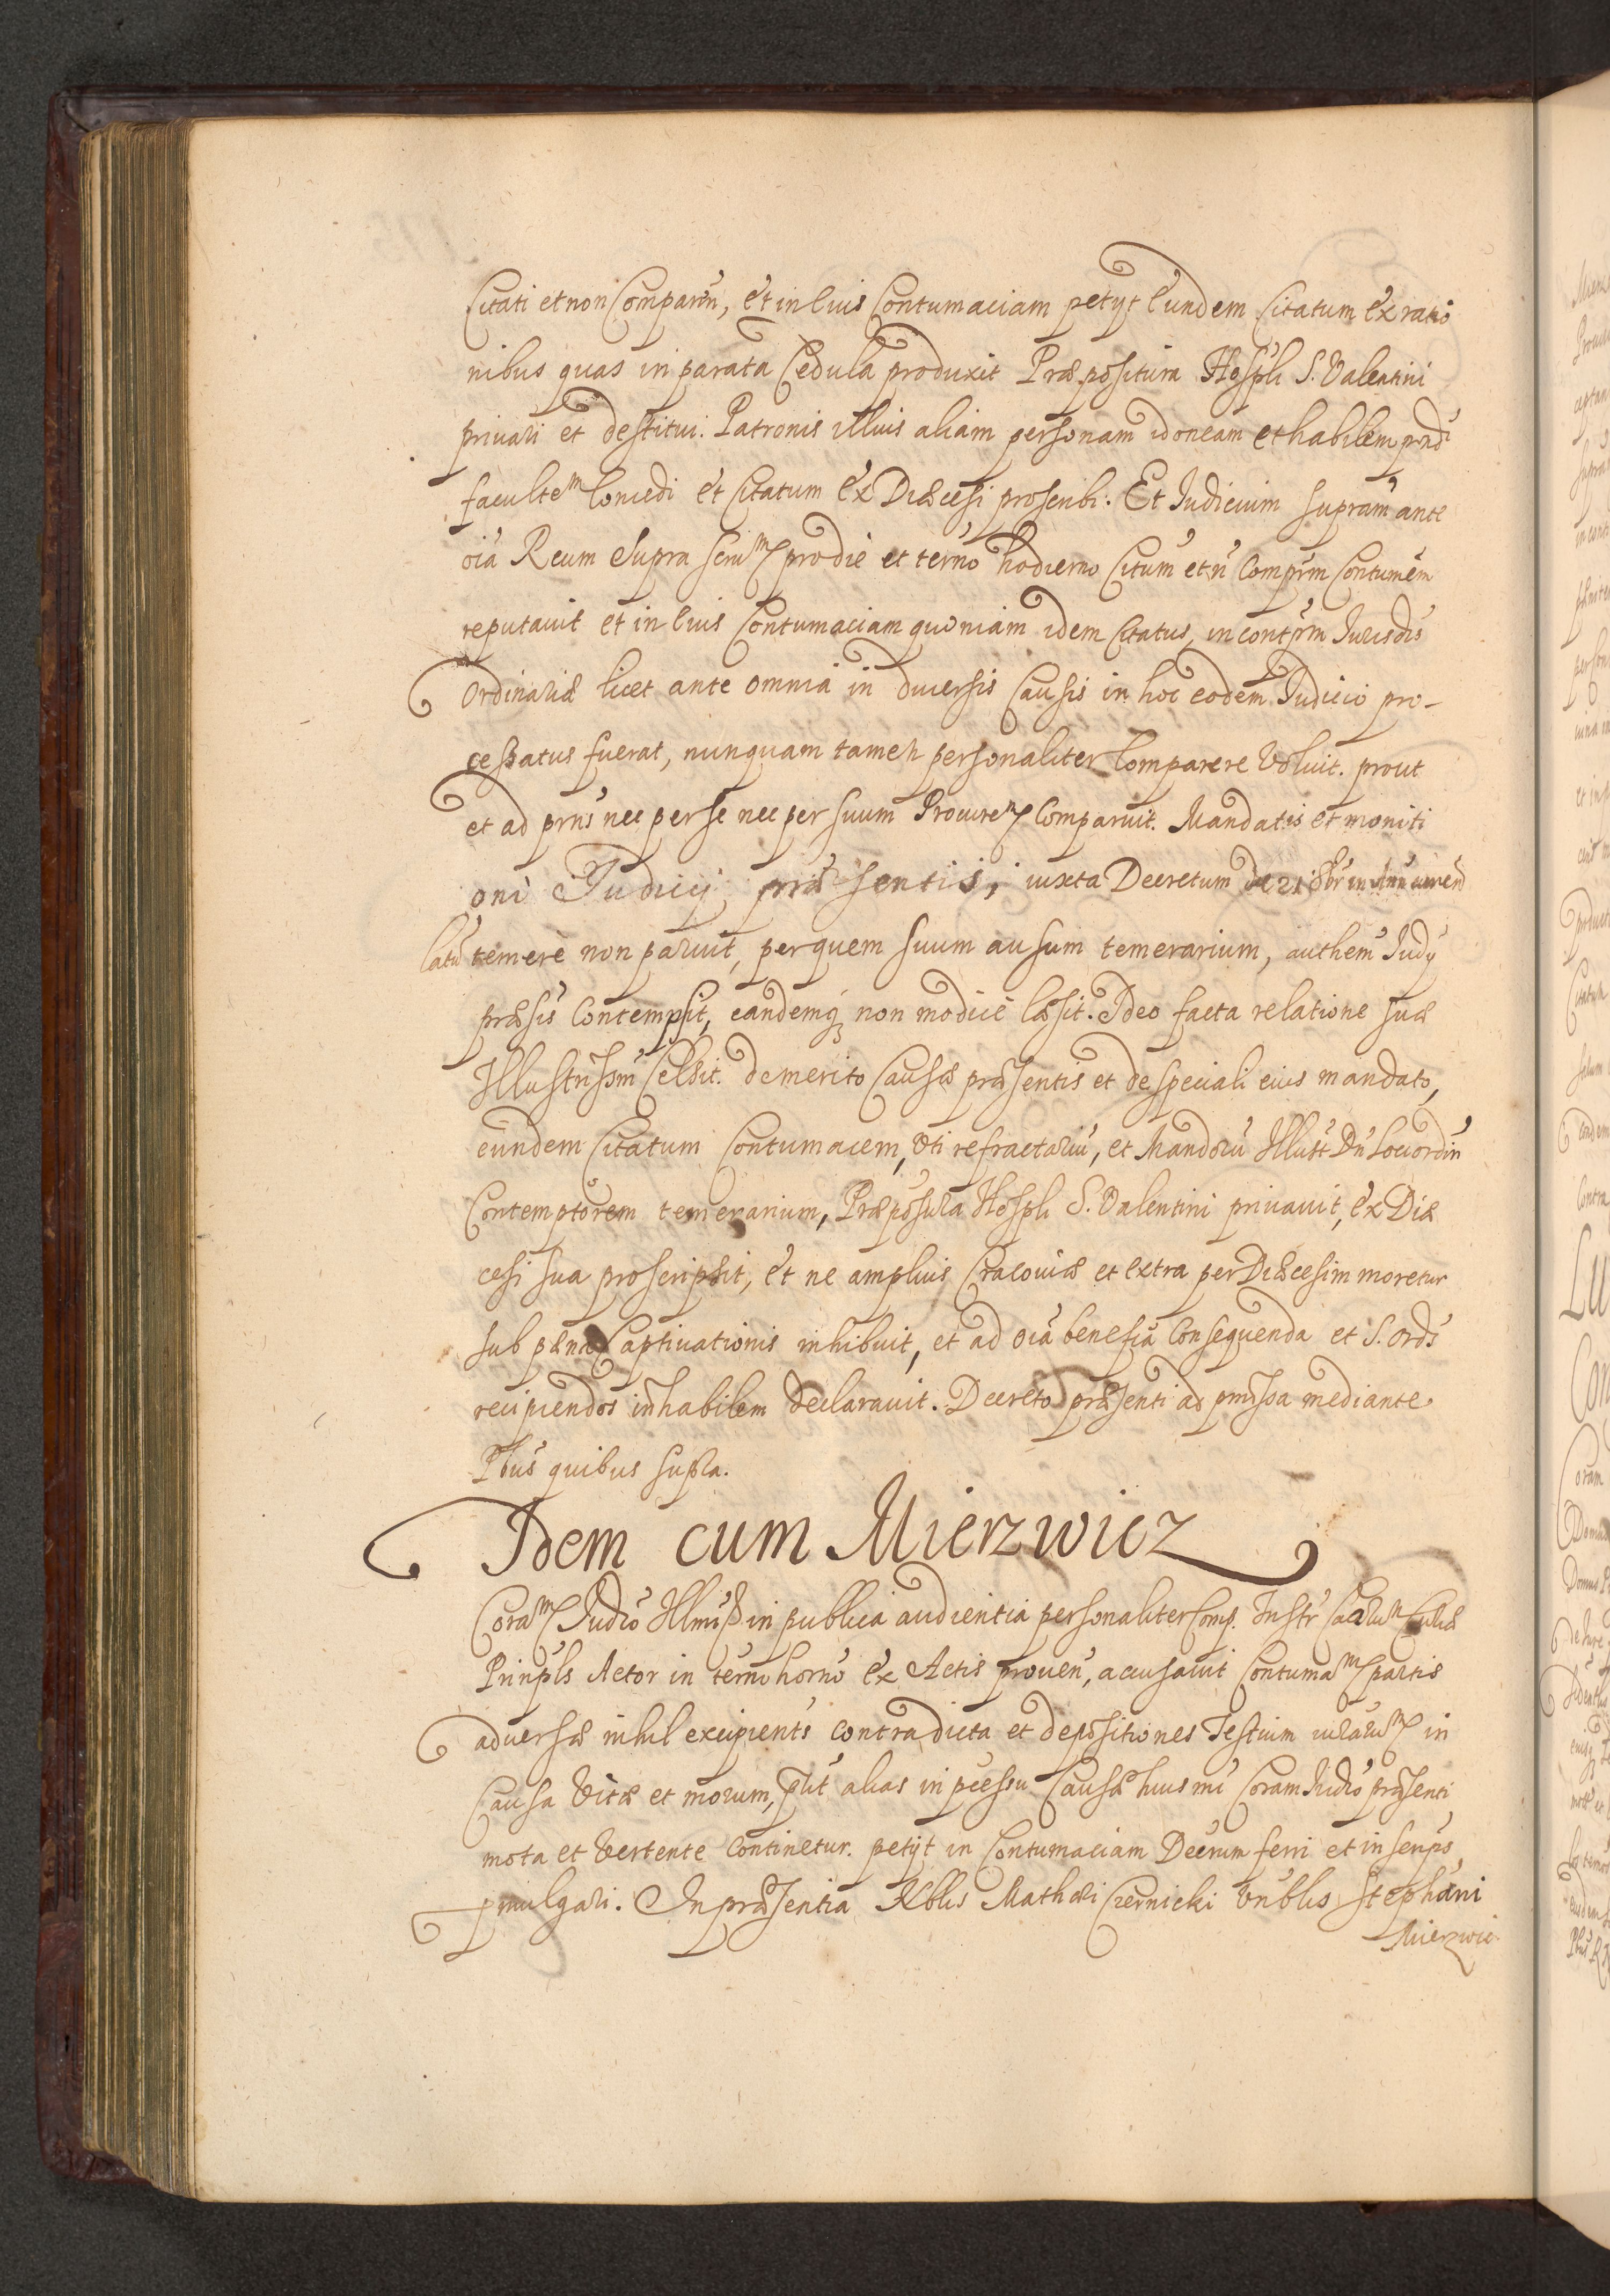 Citati et non Comparen̄, et in Eius Contumaciam petÿt Eundem Citatum Ex ratio
nibus quas in parata Cedula produxit Præpositura Hospli S. Valentini
priuari et destitui. Patronis illius aliam personam idoneam et habilem prñdi
facultem Concedi et Citatum Ex Diæcesi proscribi. Et Iudicium supram ante
oia Reum Supra scrum pro die et termo hodierno Citum et n̄ Comprm Contumem
reputauit et in Eius Contumaciam quoniam idem Citatus, in contprm Iurisdis
Ordinariæ licet ante omnia in diuersis Causis in hoc eodem Iudicio pro-
cessatus fuerat, nunquam tamen personaliter Comparere Voluit. prout
et ad prns nec per se nec per suum Procurem Comparuit. Mandatis et moniti
oni Iudicij præsentis, iuxta Decretum de 21 8br in
latu temere non paruit, per quem suum ausum temerarium, authem Iudÿ
præsis Contempsit, eandemq non modice læsit. Ideo facta relatione suæ
Illustrissm Celsit. de merito Causæ præsentis et de speciali eius mandato,
eundem Citatum Contumacem, Vti refractariu, et Mandoru Illust Dn̄ Lociordin̄
Contemptorem temerarium, Præpositura Hospli S. Valentini priuauit, Ex Diæ
cesi sua proscripsit, et ne amplius Cracouiæ et extra per Diæcesim moretur
sub pæna Captiuationis inhibuit, et ad oia benefia Consequenda et S. Ords
recipiendos inhabilem declarauit. Decreto præsenti ad pmissa mediante
Ptbus quibus supra.
Idem cum Mierzwicz
Coram Iudio Illmi in publica audientia personaliter Comp. Instr Caarum Curiæ
Prinpls Actor in termo horno Ex Actis prouen, accusauit Contumam partis
aduersæ nihil excipients contra dicta et depositiones Testium iuratorum in
Causa Vitæ et morum, put alias in pcessu Causæ huiusmi Coram Iudio præsenti
mota et Vertente Continetur. petÿt in Contumaciam Decrum ferri et in scrips
pmulgari. In præsentia Nblis Mathæi Czernicki Vnblis Stephani
Mierzwic-